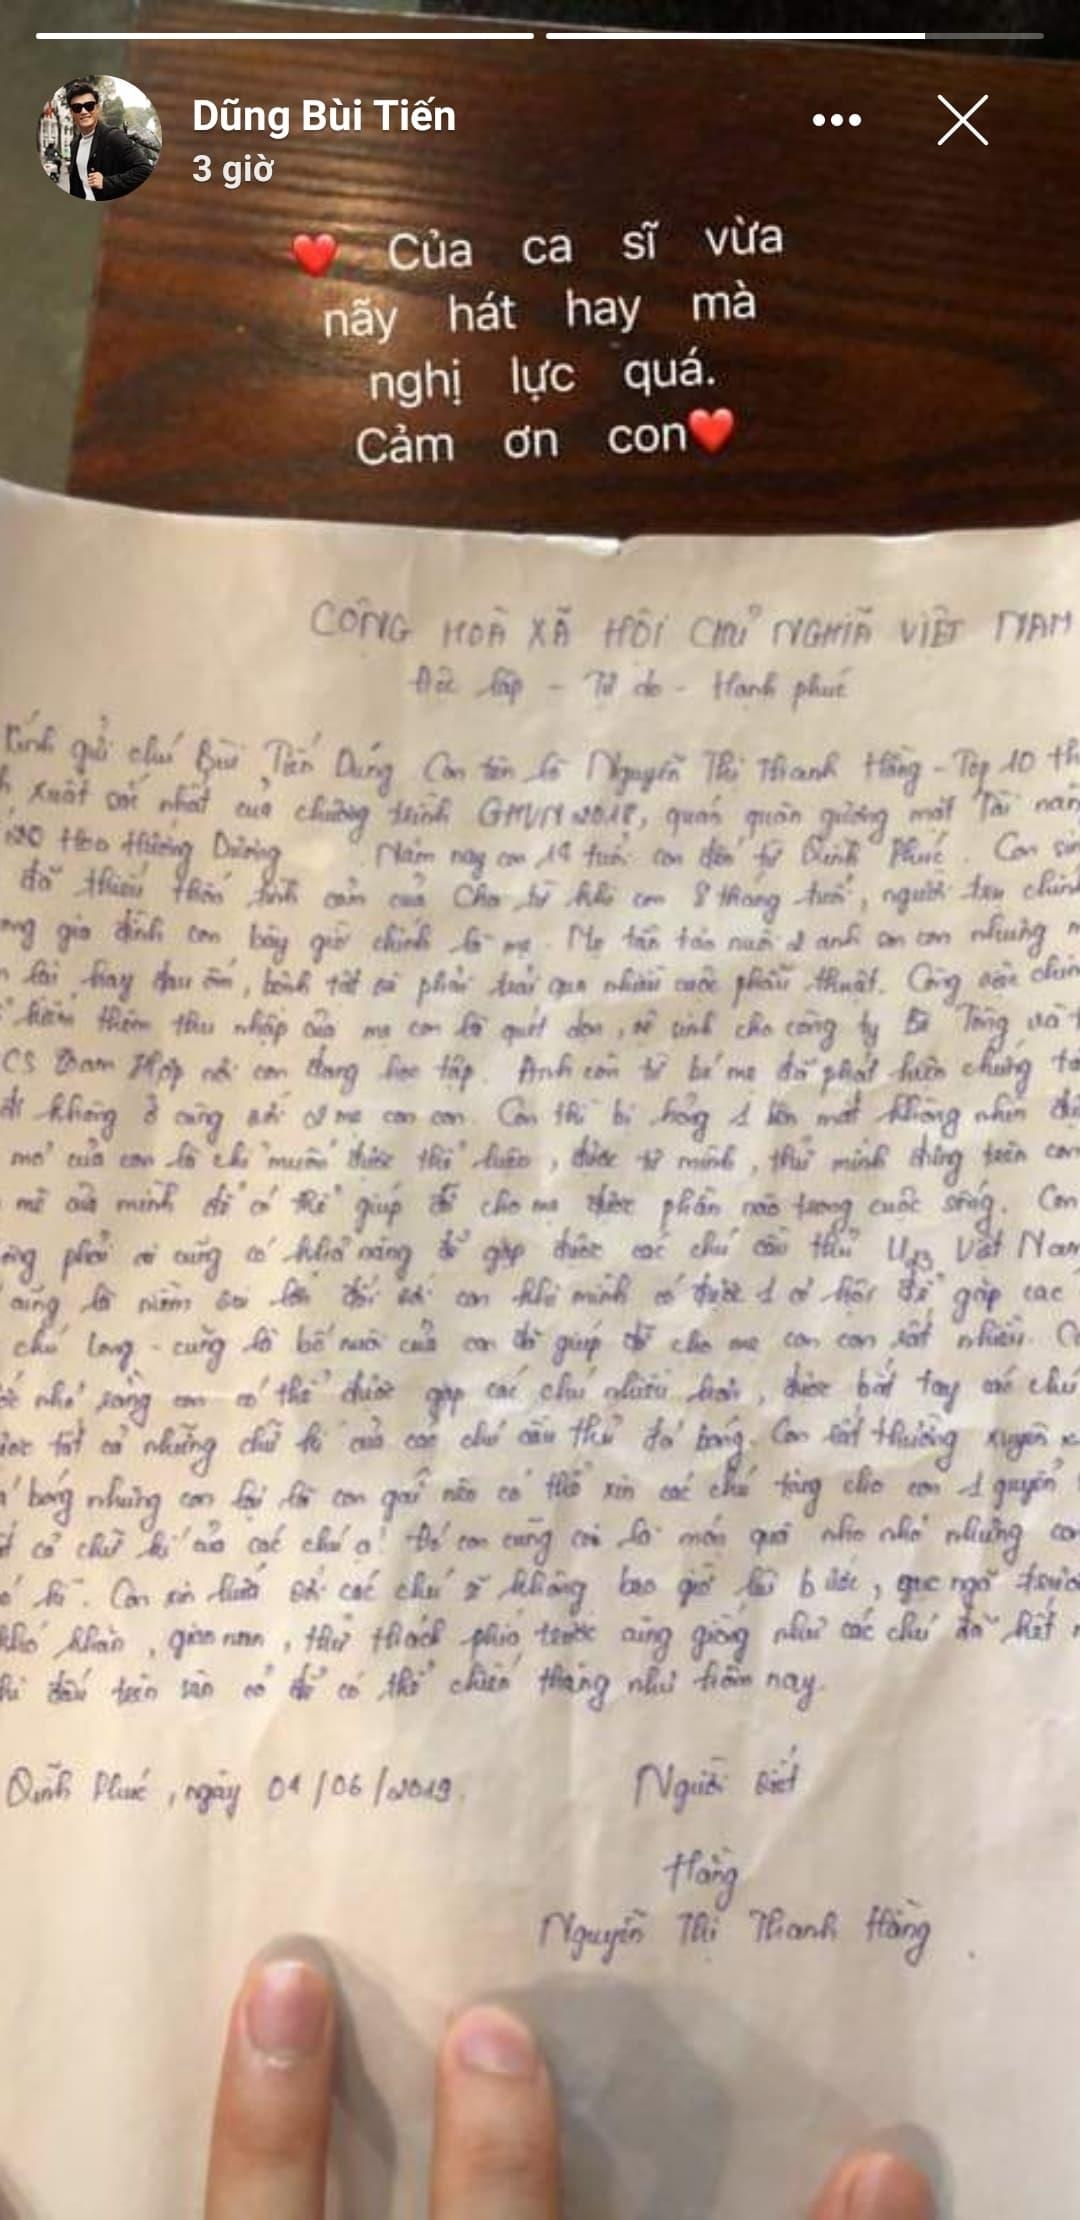 Dũng Bùi Tiến
3 giờ
❤️ Của ca sĩ vừa
nãy hát hay mà
nghị lực quá.
Cảm ơn con❤️
CỘNG HOÀ XÃ HỘI CHỦ NGHĨA VIỆT NAM
Độc lập - Tự do - Hạnh phúc
Kính gửi chú Bùi Tiến Dũng Con tên là Nguyễn Thị Thanh Hằng - Top 10 th
xuất sắc nhất của chương trình GHVN 2018, quán quân gương mặt Tài năn
Hoa Hướng Dương. Năm nay con 14 tuổi con đến từ Vĩnh Phúc. Con sin
đã thiếu thốn tình cảm của Cha từ khi con 8 tháng tuổi, người trụ chính
ong gia đình con bây giờ chính là mẹ. Mẹ tần tảo nuôi 2 anh em con nhưng m
lại hay đau ốm, bệnh tật và phải trải qua nhiều cuộc phẫu thuật. Công việc chín
kiếm thêm thu nhập của mẹ con là quét dọn, vệ sinh cho công ty Bê Tông và t
CS Đam Hợp nơi con đang học tập. Anh con từ bé mẹ đã phát hiện chứng tự
không ở cùng với 2 mẹ con con. Con thì bị hỏng 1 bên mắt không nhìn đư
mơ của con là chỉ muốn được thể hiện, được tự mình, thử mình đứng trên con
mê của mình để có thể giúp đỡ cho mẹ được phần nào trong cuộc sống. Con
ông phải ai cũng có khả năng để gặp được các chú cầu thủ U23 Việt Nam
cũng là niềm vui lớn đối với con khi mình có được 1 cơ hội để gặp các
chú Long - cũng là bố nuôi của con đã giúp đỡ cho mẹ con con rất nhiều. C
nhỏ rằng con có thể được gặp các chú nhiều hơn, được bắt tay các chú
ược tất cả những chữ kí của các chú cầu thủ đá bóng. Con rất thường xuyên x
bóng nhưng con lại là con gái nên có thể xin các chú tặng cho con 1 quyển
cả chữ kí của các chú ạ! Đó con cũng coi là món quà nho nhỏ nhưng co
Con xin hứa với các chú sẽ không bao giờ lùi bước, gục ngã trướ
khó khăn, gian nan, thử thách phía trước cũng giống như các chú đã hết m
hi đấu trên sân cỏ để có thể chiến thắng như hôm nay.
Vĩnh Phúc, ngày 04/06/2019.
Người viết
Hằng
Nguyễn Thị Thanh Hằng.